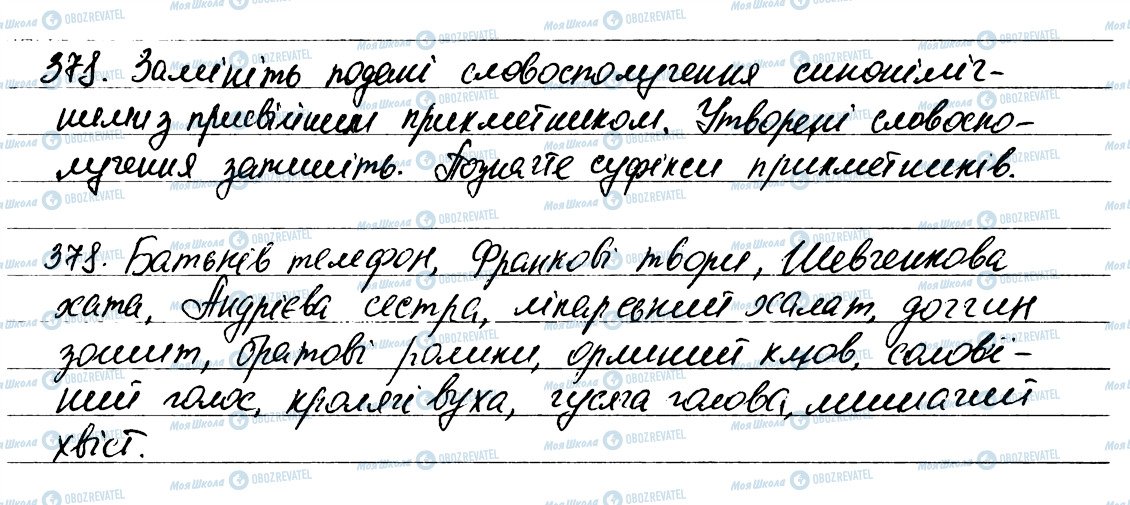 378. Замініть подані словосполучення синоніміч-
ними з присвійним прикметником. Утворені словоспо-
лучення запишіть. Позначте суфікси прикметників.
378. Батьків телефон, Франкові твори, Шевченкова
хата, Андрієва сестра, лікарський халат, доччин
зошит, братові ролики, орлиний клюв, солов'ї-
ний голос, кролячі вуха, гусяча голова, лисячий
хвіст.